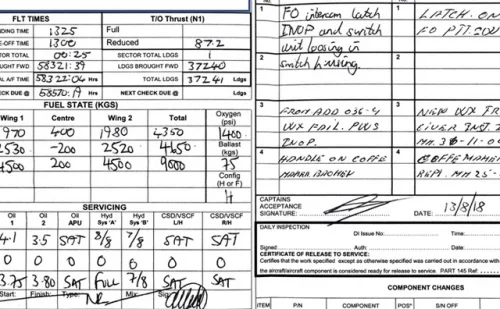 FLT TIMES
T/O Thrust (N1)
NDING TIME 1325 Full
E-OFF TIME 1300 Reduced 87.2
TOR TOTAL 00:25 SECTOR TOTAL LDGS 1
FWD 58321:39 LDGS BROUGHT FWD 37240
L A/F TIME 58322:04 Hrs TOTAL LDGS 37241 Ldgs
CK DUE @ 58570:19 Hrs NEXT CHECK DUE @ Ldgs
FUEL STATE (KGS)
Wing 1 Centre Wing 2 Total Oxygen (psi)
970 400 1980 4350 1400
2530 -200 2520 4650 Ballast (kgs)
4500 200 4500 9000 75
Config (H or F)
H
SERVICING
Oil 1 Oil 2 Oil APU Hyd Sys 'A' Hyd Sys 'B' CSD/VSCF L/H CSD/VSCF R/H
4.1 3.5 SAT 8/8 7/8 SAT SAT
0 0 0 0 0 0
3.75 3.80 SAT FULL 7/8 SAT SAT
Start: Finish: Type: Mix: Sig:
1 FO intercom latch
INOP and switch
unit loosing in
switch housing.
3 FROM ADD 036-4
WX FAIL. PWS
INOP.
4 HANDLE ON COFFE
MAKER BROKEN
1 LATCH
FO PTT
2
3 NEW WX
4 COFFE
CAPTAINS
ACCEPTANCE
SIGNATURE:
DATE: 13/8/18
DAILY INSPECTION
DI Issue No:
Signed: Auth: Date:
CERTIFICATE OF RELEASE TO SERVICE:
Certifies that the work specified except as otherwise specified was carried out in accordance with
the aircraft/aircraft component is considered ready for release to service. PART 145 Ref
COMPONENT CHANGES
ITEM P/N COMPONENT POS° S/N OFF